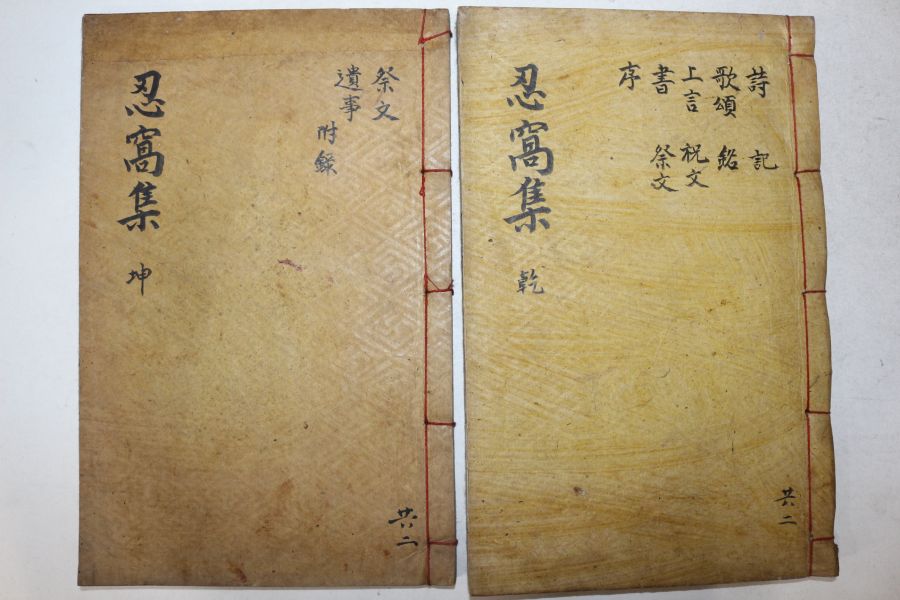 忍窩集 坤
祭文
遺事 附錄
共二
忍窩集 乾
詩 記
歌頌 銘
上言 祝文
書 祭文
序
共二